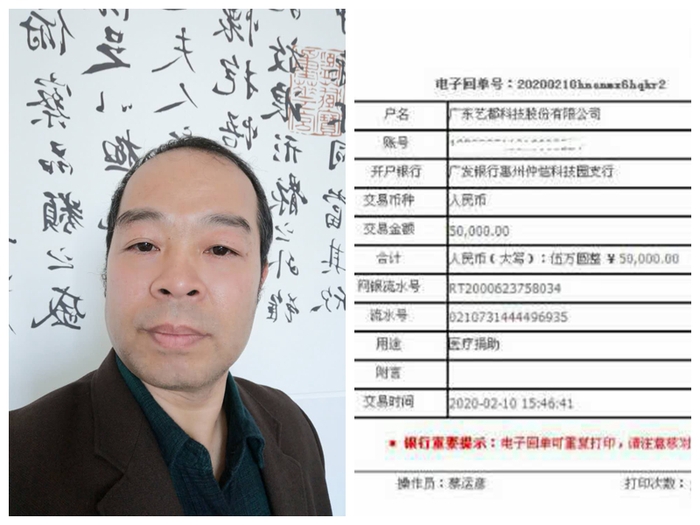 俯察品類之盛
足以極
夫人
懷抱悟
放浪形骸之外雖
同當其欣
电子回单号：20200210hnanmx6hqkr2
户名 广东艺都科技股份有限公司
账号
开户银行 广发银行惠州仲恺科技园支行
交易币种 人民币
交易金额 50,000.00
合计 人民币（大写）：伍万圆整 ￥50,000.00
网银流水号 RT2000623758034
流水号 0210731444496935
用途 医疗捐助
附言
交易时间 2020-02-10 15:46:41
* 银行重要提示：电子回单可重复打印，请注意核对
操作员：蔡运彦 打印次数：